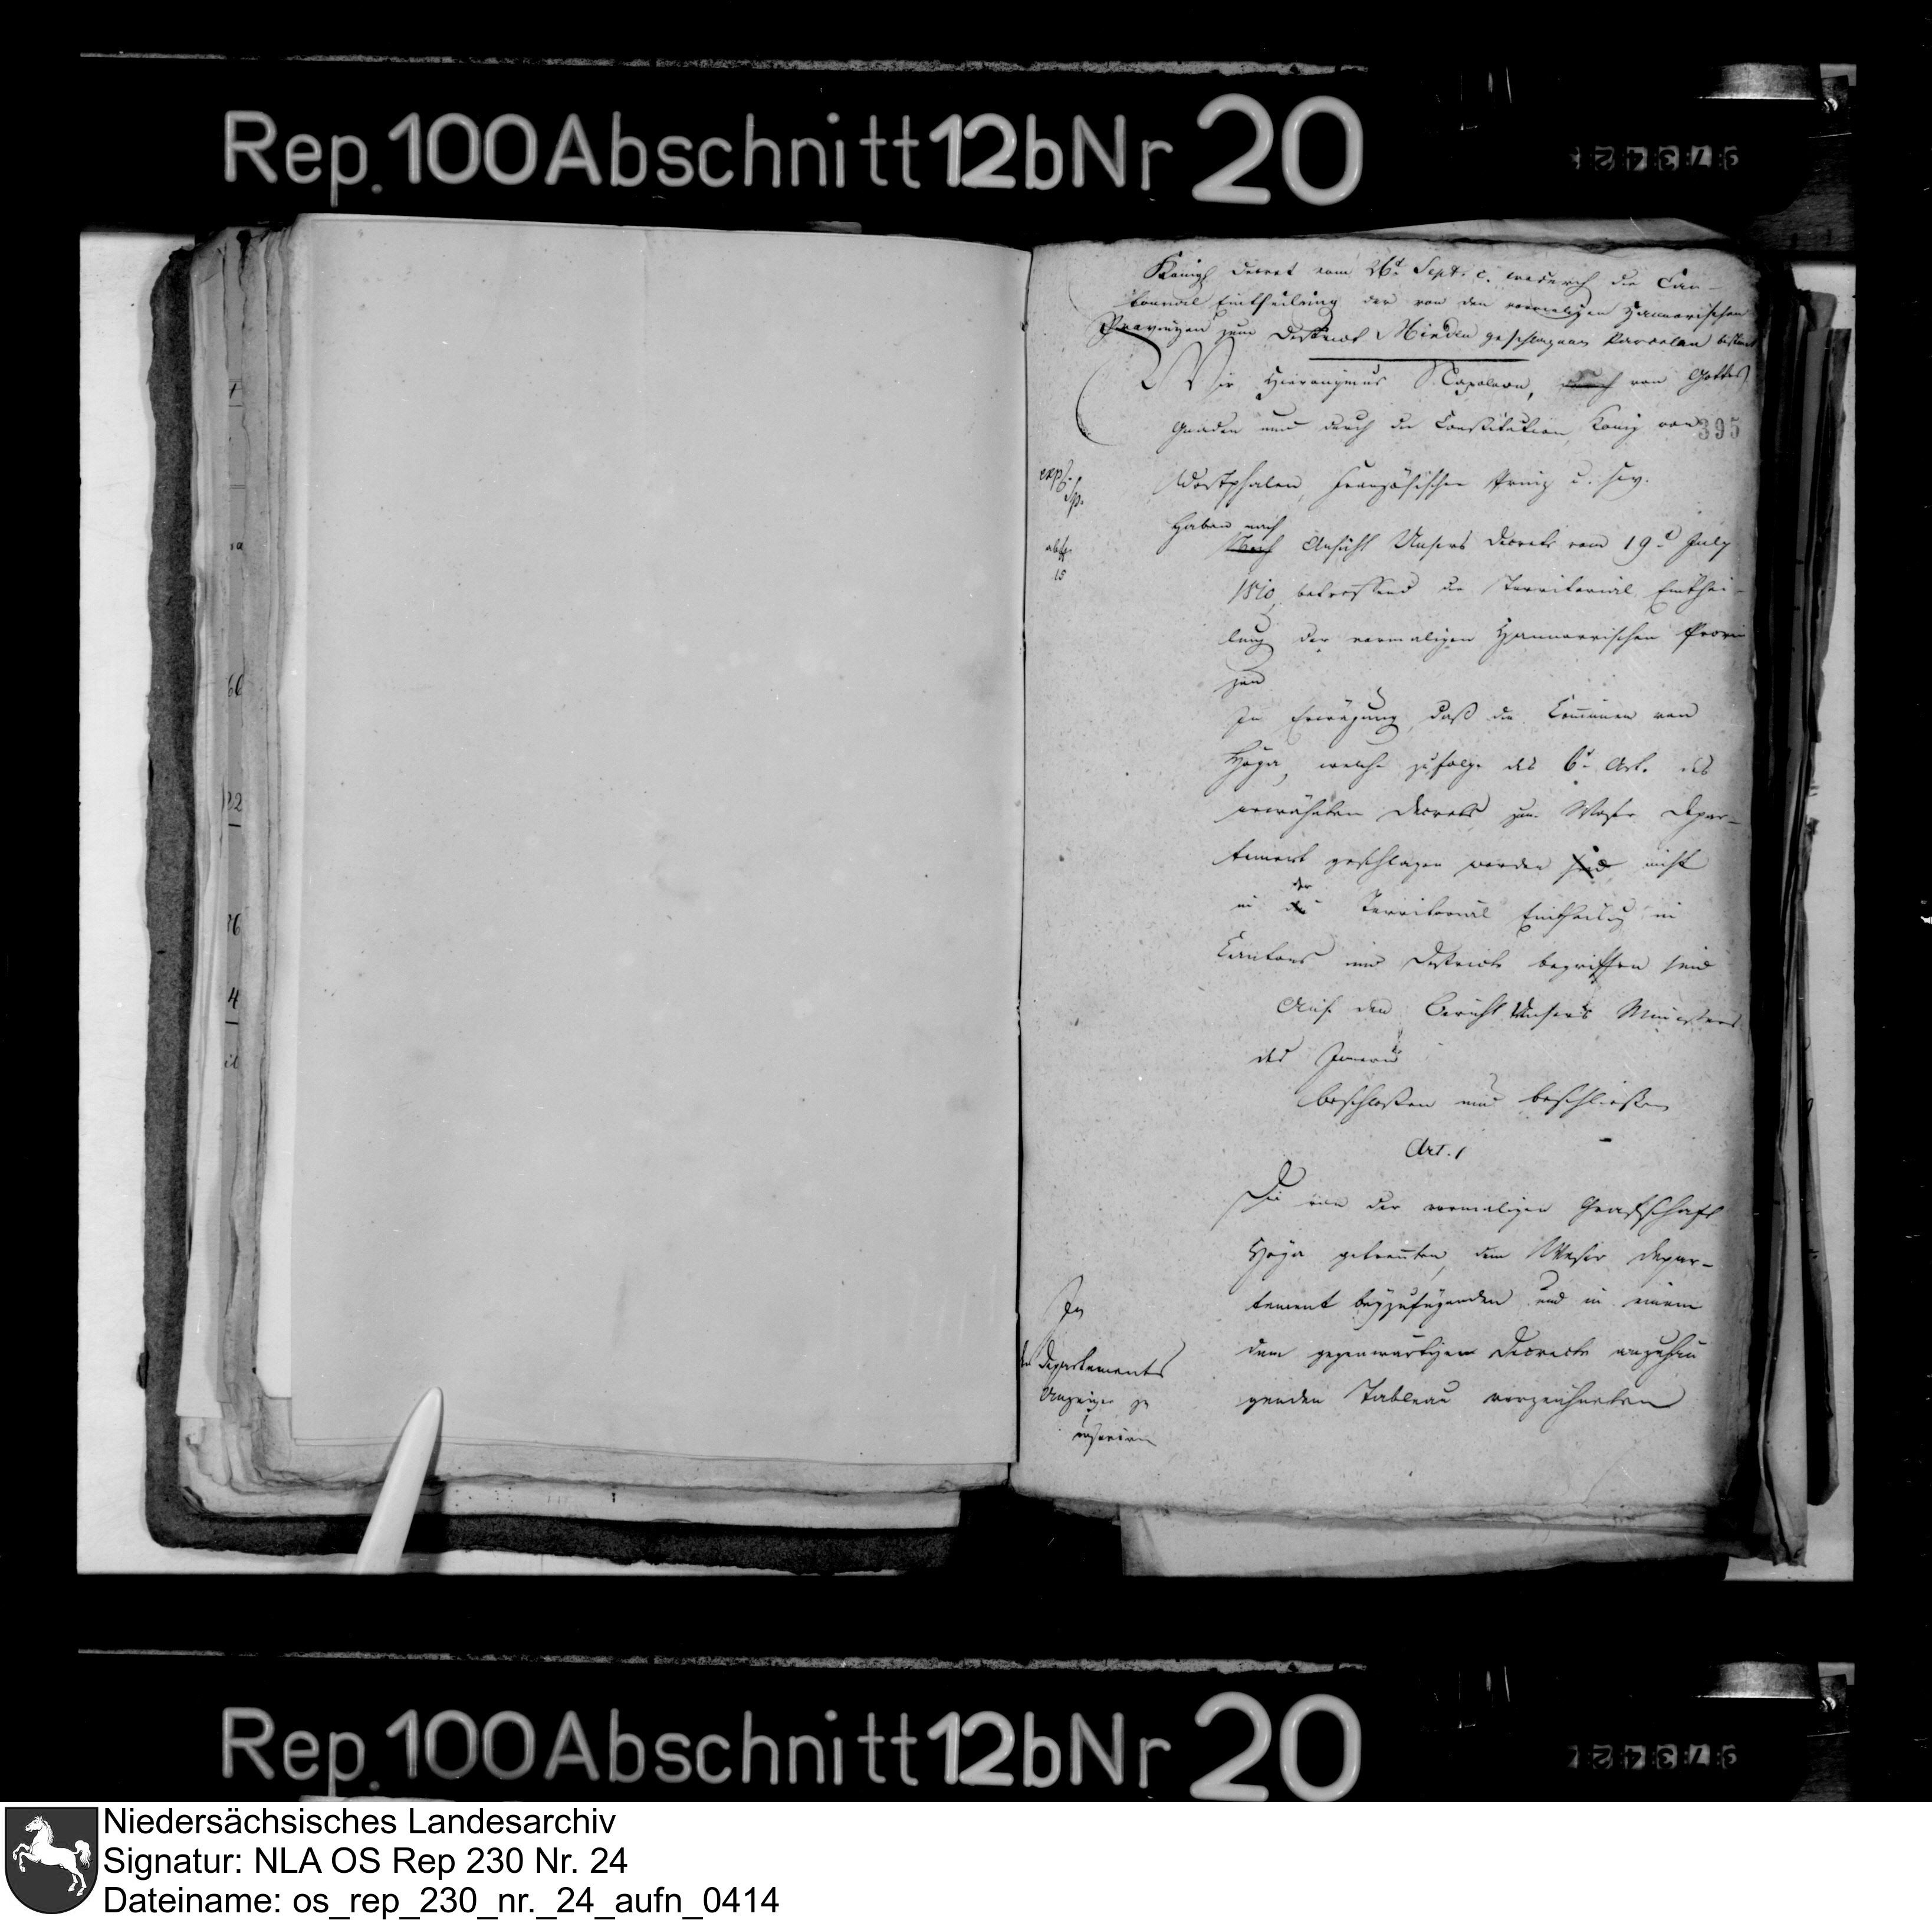 Rep. 100 Abschnitt 12b Nr 20
Königl. Decret vom 26t. Sept. c. wodurch die Can-
tonnal Eintheilung der von den vormaligen Hannovrischen
Provinzen zum District Minden geschlagenen Parcelen bestimt
Wir Hieronymus Napoleon, durch von Gottes
Gnaden und durch die Constitution, König von
395
Westphalen, französischer Prinz u. s. w.
expd.
Haben nach
Nach Ansicht Unsers Decrets vom 19t. July
1810, betreffend die Territorial Einthei-
lung der vormaligen Hannovrischen Provin
zen
In Erwägung, daß die Communen von
Hoya, welche zufolge des 6t. Art. des
erwähnten Decrets zum Weser Depar-
tement geschlagen worden sind nicht
der
in die Territorial Eintheilung in
Cantons und Districte begriffen sind
Auf den Bericht Unsers Ministers
des Innern
beschlossen und beschließen
Art. 1
Die von der vormaligen Grafschaft
Hoya getrennten, dem Weser Depar-
tement beyzufügenden und in einem
dem gegenwärtigen Decrete anzuhän
genden Tableau verzeichneten
In
den Departements
Anzeiger zu
inseriren
Rep. 100 Abschnitt 12b Nr 20
Niedersächsisches Landesarchiv
Signatur: NLA OS Rep 230 Nr. 24
Dateiname: os_rep_230_nr._24_aufn_0414